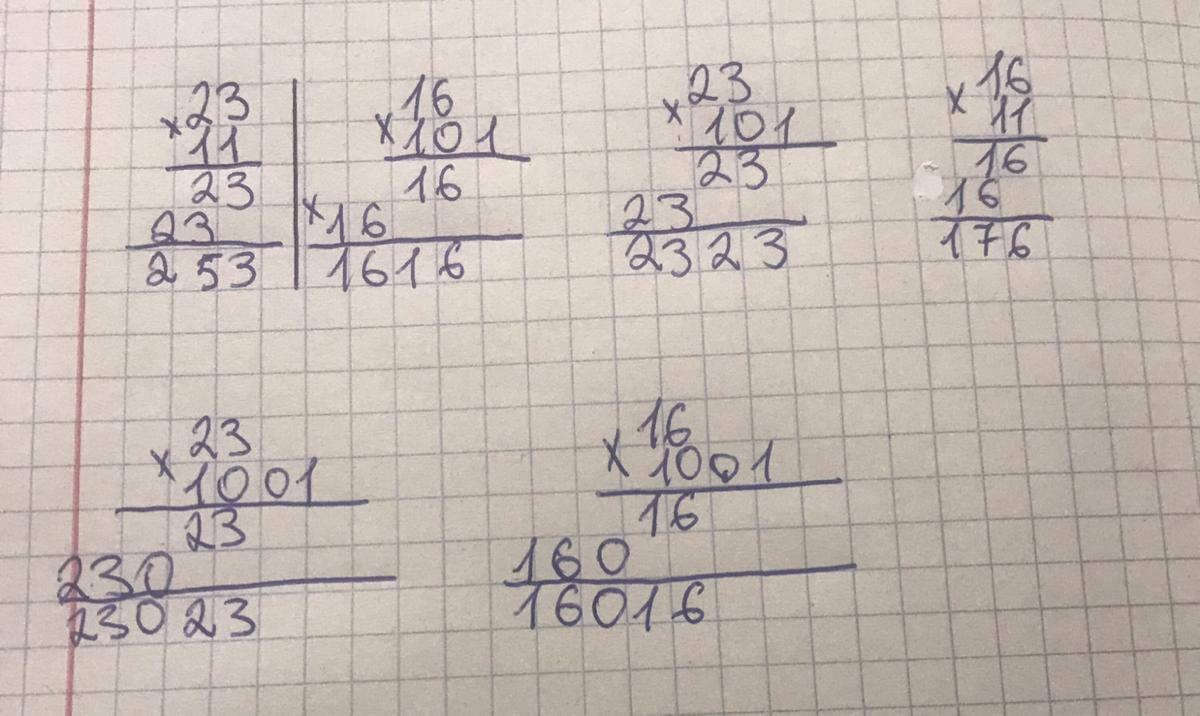 ×23
11
23
23
253
×16
101
16
×16
1616
×23
101
23
23
2323
×16
11
16
16
176
×23
1001
23
230
23023
×16
1001
16
160
16016